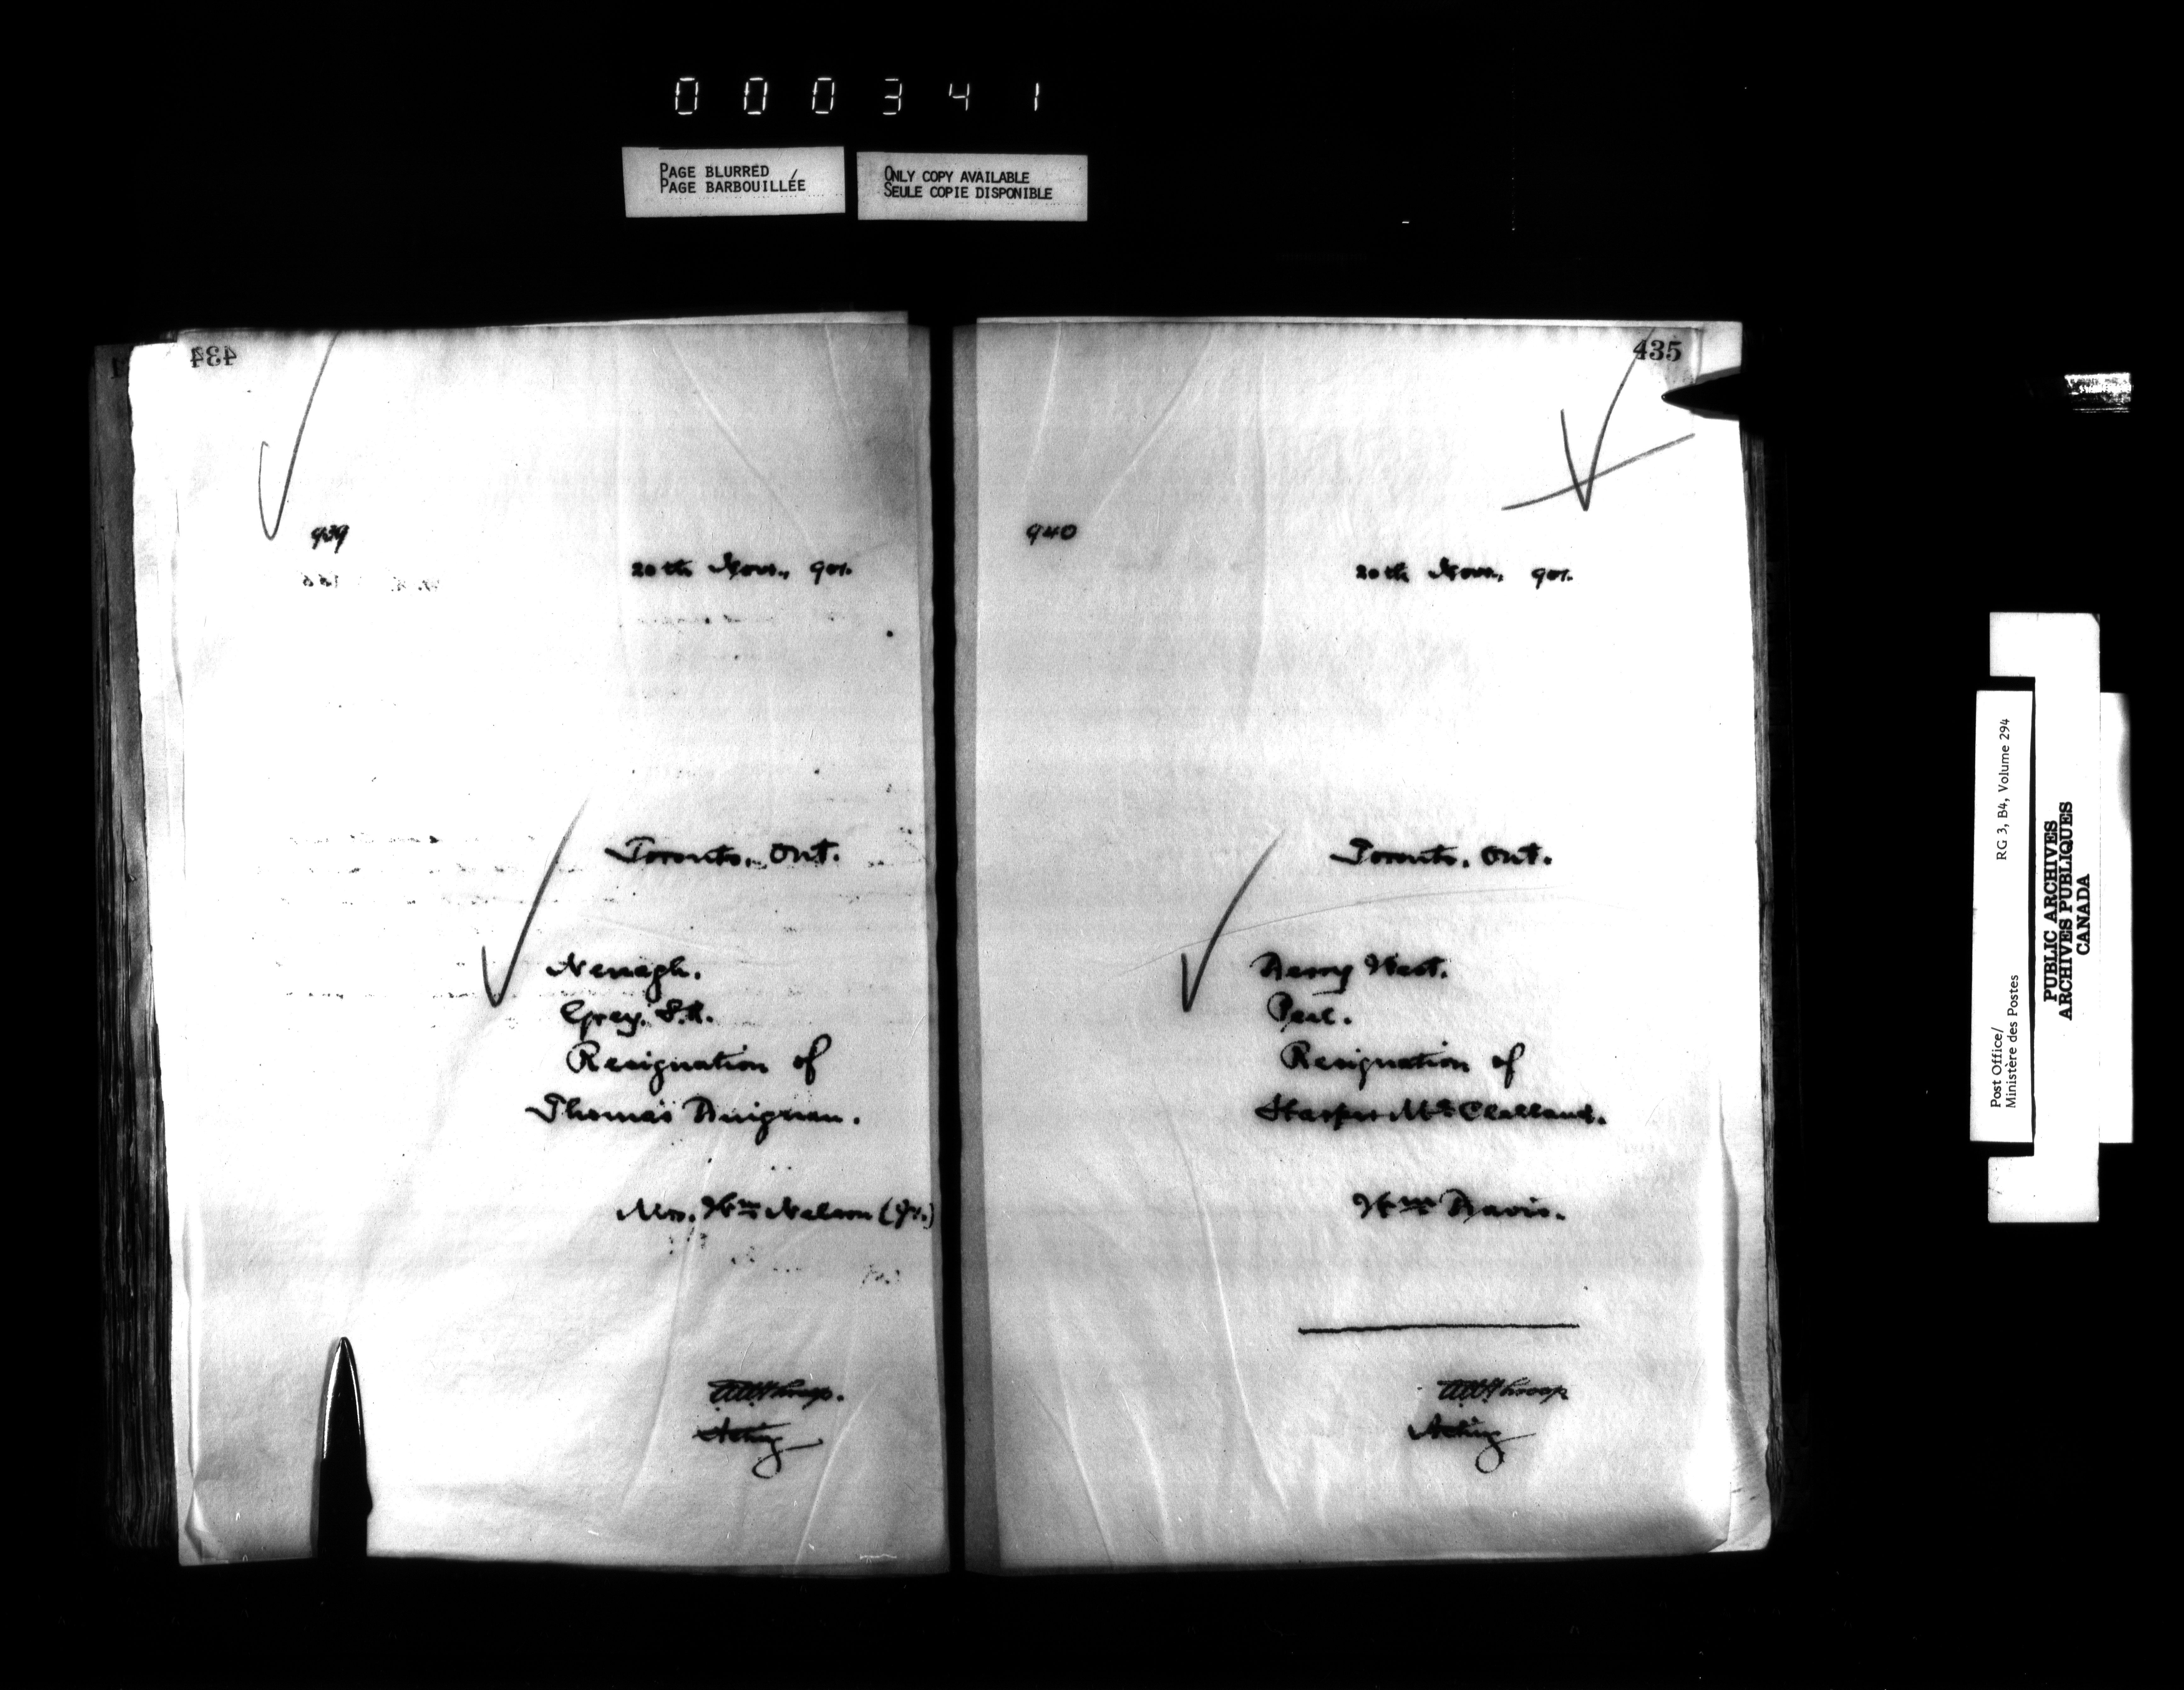 000341
PAGE BLURRED
PAGE BARBOUILLÉE
ONLY COPY AVAILABLE
SEULE COPIE DISPONIBLE
434
939
20th Nov., 901.
Toronto, Ont.
Nenagh.
Grey. S.R.
Resignation of
Thomas Duignan.
Mrs. Wm Nelson (Jr.)
Acting
435
940
20th Nov., 901.
Toronto, Ont.
Derry West.
Peel.
Resignation of
Harper McClelland.
Wm Davis.
Acting
Post Office/
Ministère des Postes
RG 3, B4, Volume 294
PUBLIC ARCHIVES
ARCHIVES PUBLIQUES
CANADA